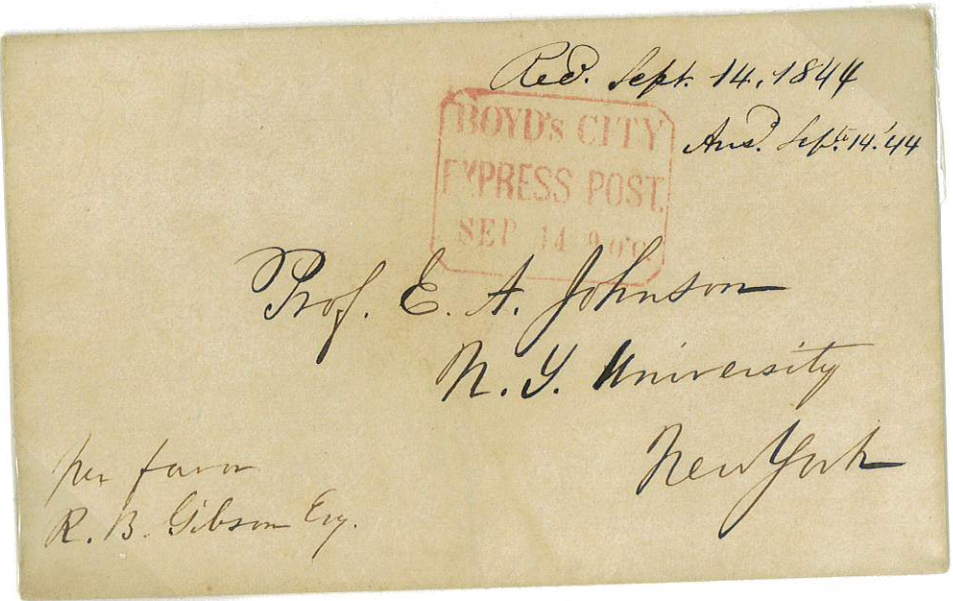 Recd. Sept. 14, 1844
Ansd. Septr. 14. '44
BOYD's CITY
EXPRESS POST,
SEP 14 9 o'c.
Prof. E. A. Johnson
N. Y. University
New York
per favor
R. B. Gibson Esq.